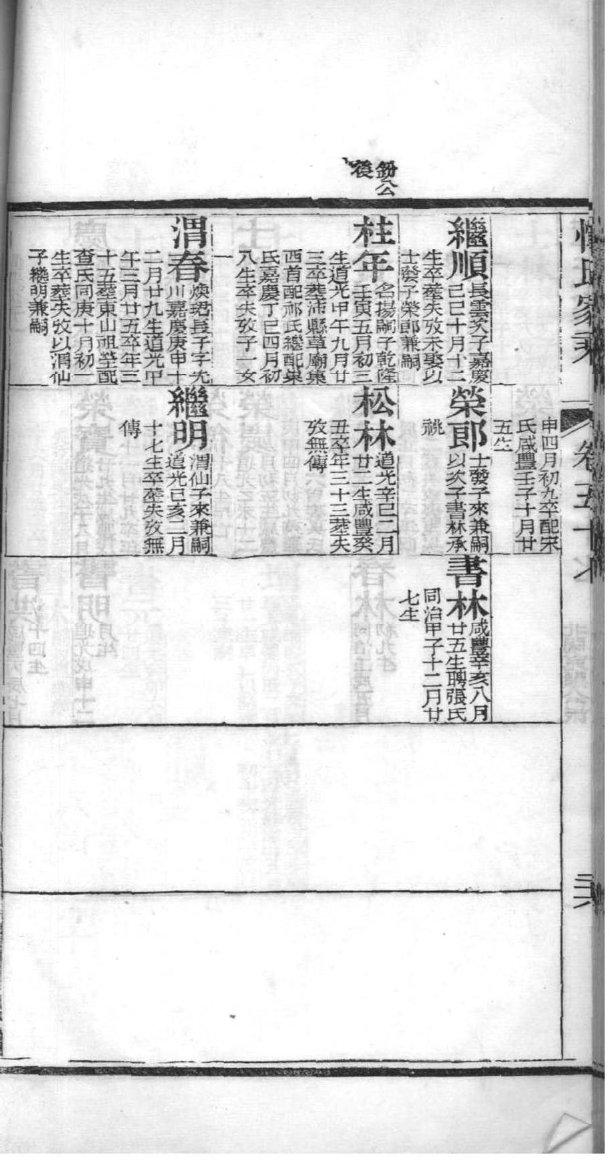 鈖公
後
申四月初九卒配宋
氏咸豐壬子十月廿
五生
繼順
長雲次子嘉慶
己巳十月十二
生卒塟失攷未娶以
士發子榮郎兼嗣
榮郎
士發子來兼嗣
以次子書林承
祧
書林
咸豐辛亥八月
廿五生聘張氏
同治甲子十二月廿
七生
桂年
名揚嗣子乾隆
壬寅五月初三
生道光甲午九月廿
三卒塟沛縣草廟集
西首配祁氏繼配巢
氏嘉慶丁巳四月初
八生卒失攷子一女
一
松林
道光辛巳二月
廿二生咸豐癸
丑卒年三十三塟失
攷無傳
渭春
煥珺長子字先
川嘉慶庚申十
二月廿九生道光甲
午三月廿五卒年三
十五塟東山祖塋配
查氏同庚十月初一
生卒塟失攷以渭仙
子繼明兼嗣
繼明
渭仙子來兼嗣
道光己亥二月
十七生卒塟失攷無
傳
惲氏家乘
卷五十